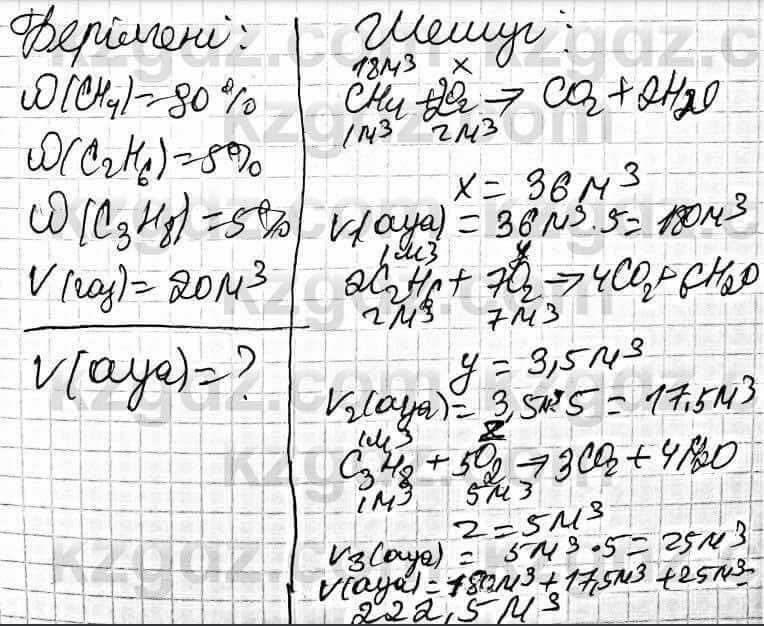 Берілгені:
ω(CH4)=80%
ω(C2H6)=5%
ω(C3H8)=5%
V(газ)=20м³
V(ауа)=?
Шешуі:
18м³ x
CH4+2O2→CO2+2H2O
1м³ 2м³
x=36м³
V1(ауа)=36м³·5=180м³
1м³ y
2C2H6+7O2→4CO2+6H2O
2м³ 7м³
y=3,5м³
V2(ауа)=3,5м³·5=17,5м³
1м³ z
C3H8+5O2→3CO2+4H2O
1м³ 5м³
z=5м³
V3(ауа)=5м³·5=25м³
V(ауа)=180м³+17,5м³+25м³=
222,5м³
kzgdz.com